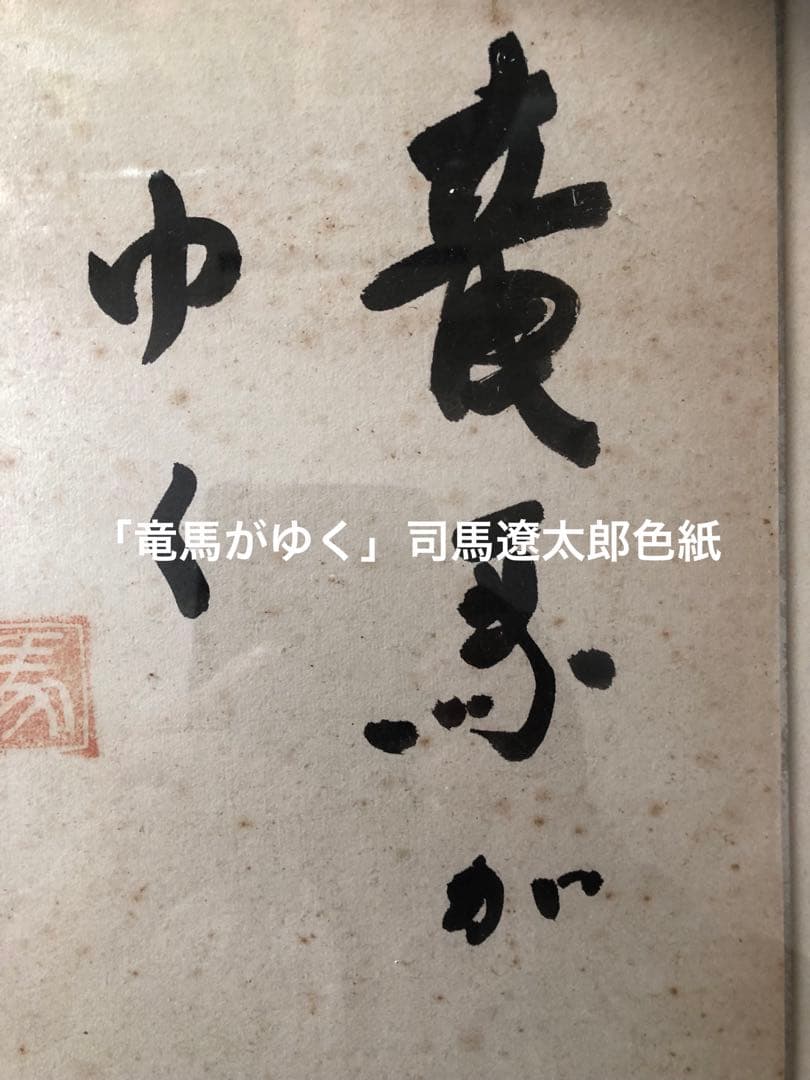 竜馬が
ゆく
「竜馬がゆく」司馬遼太郎色紙